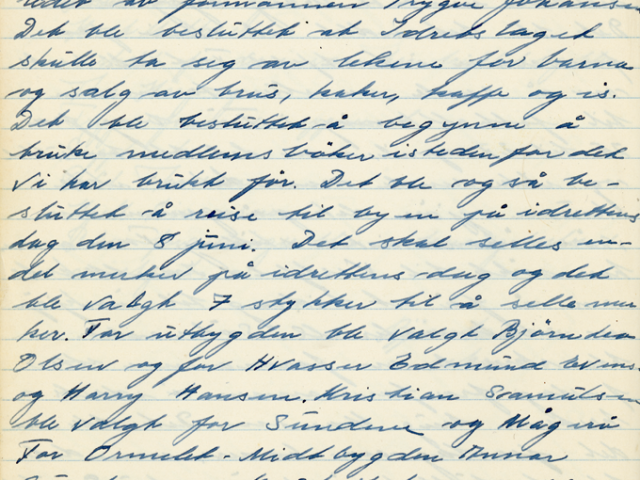 ledet av formannen Trygve Johansen
Det ble besluttet at Idrettslaget
skulle ta seg av lekene for barna
og salg av brus, kaker, kaffe og is.
Det ble besluttet å begynne å
bruke medlemsböker isteden for det
vi har brukt för. Det ble og så be-
sluttet å reise til byen på idrettens
dag den 8 juni. Det skal selles en-
del merker på idrettens dag og det
ble valgt 7 stykker til å selle mer
ker. For utbygden ble valgt
Olsen og for Hvasser Edmund Evens.
og Harry Hansen. Kristian Samuelsen
ble valgt for Sundene og Mågerö
For Ormelet - Midtbygden